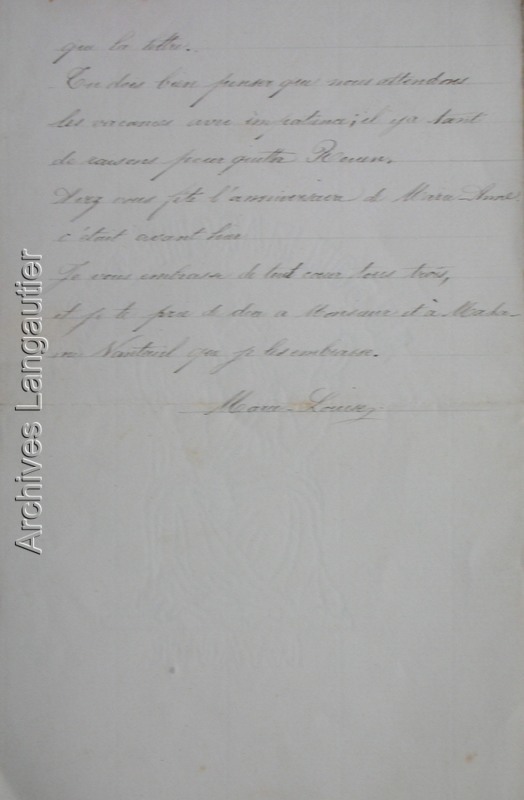 que la lettre.
Tu dois bien penser que nous attendons
les vacances avec impatience; il y a tant
de raisons pour quitter Rouen.
vous fêté l'anniversaire de Marie-
c'était avant hier
Je vous embrasse de tout cœur tous trois,
et je te prie de dire à Monsieur et à Mada-
me Nanteuil que je les embrasse.
Marie-Louise
Archives Langautier